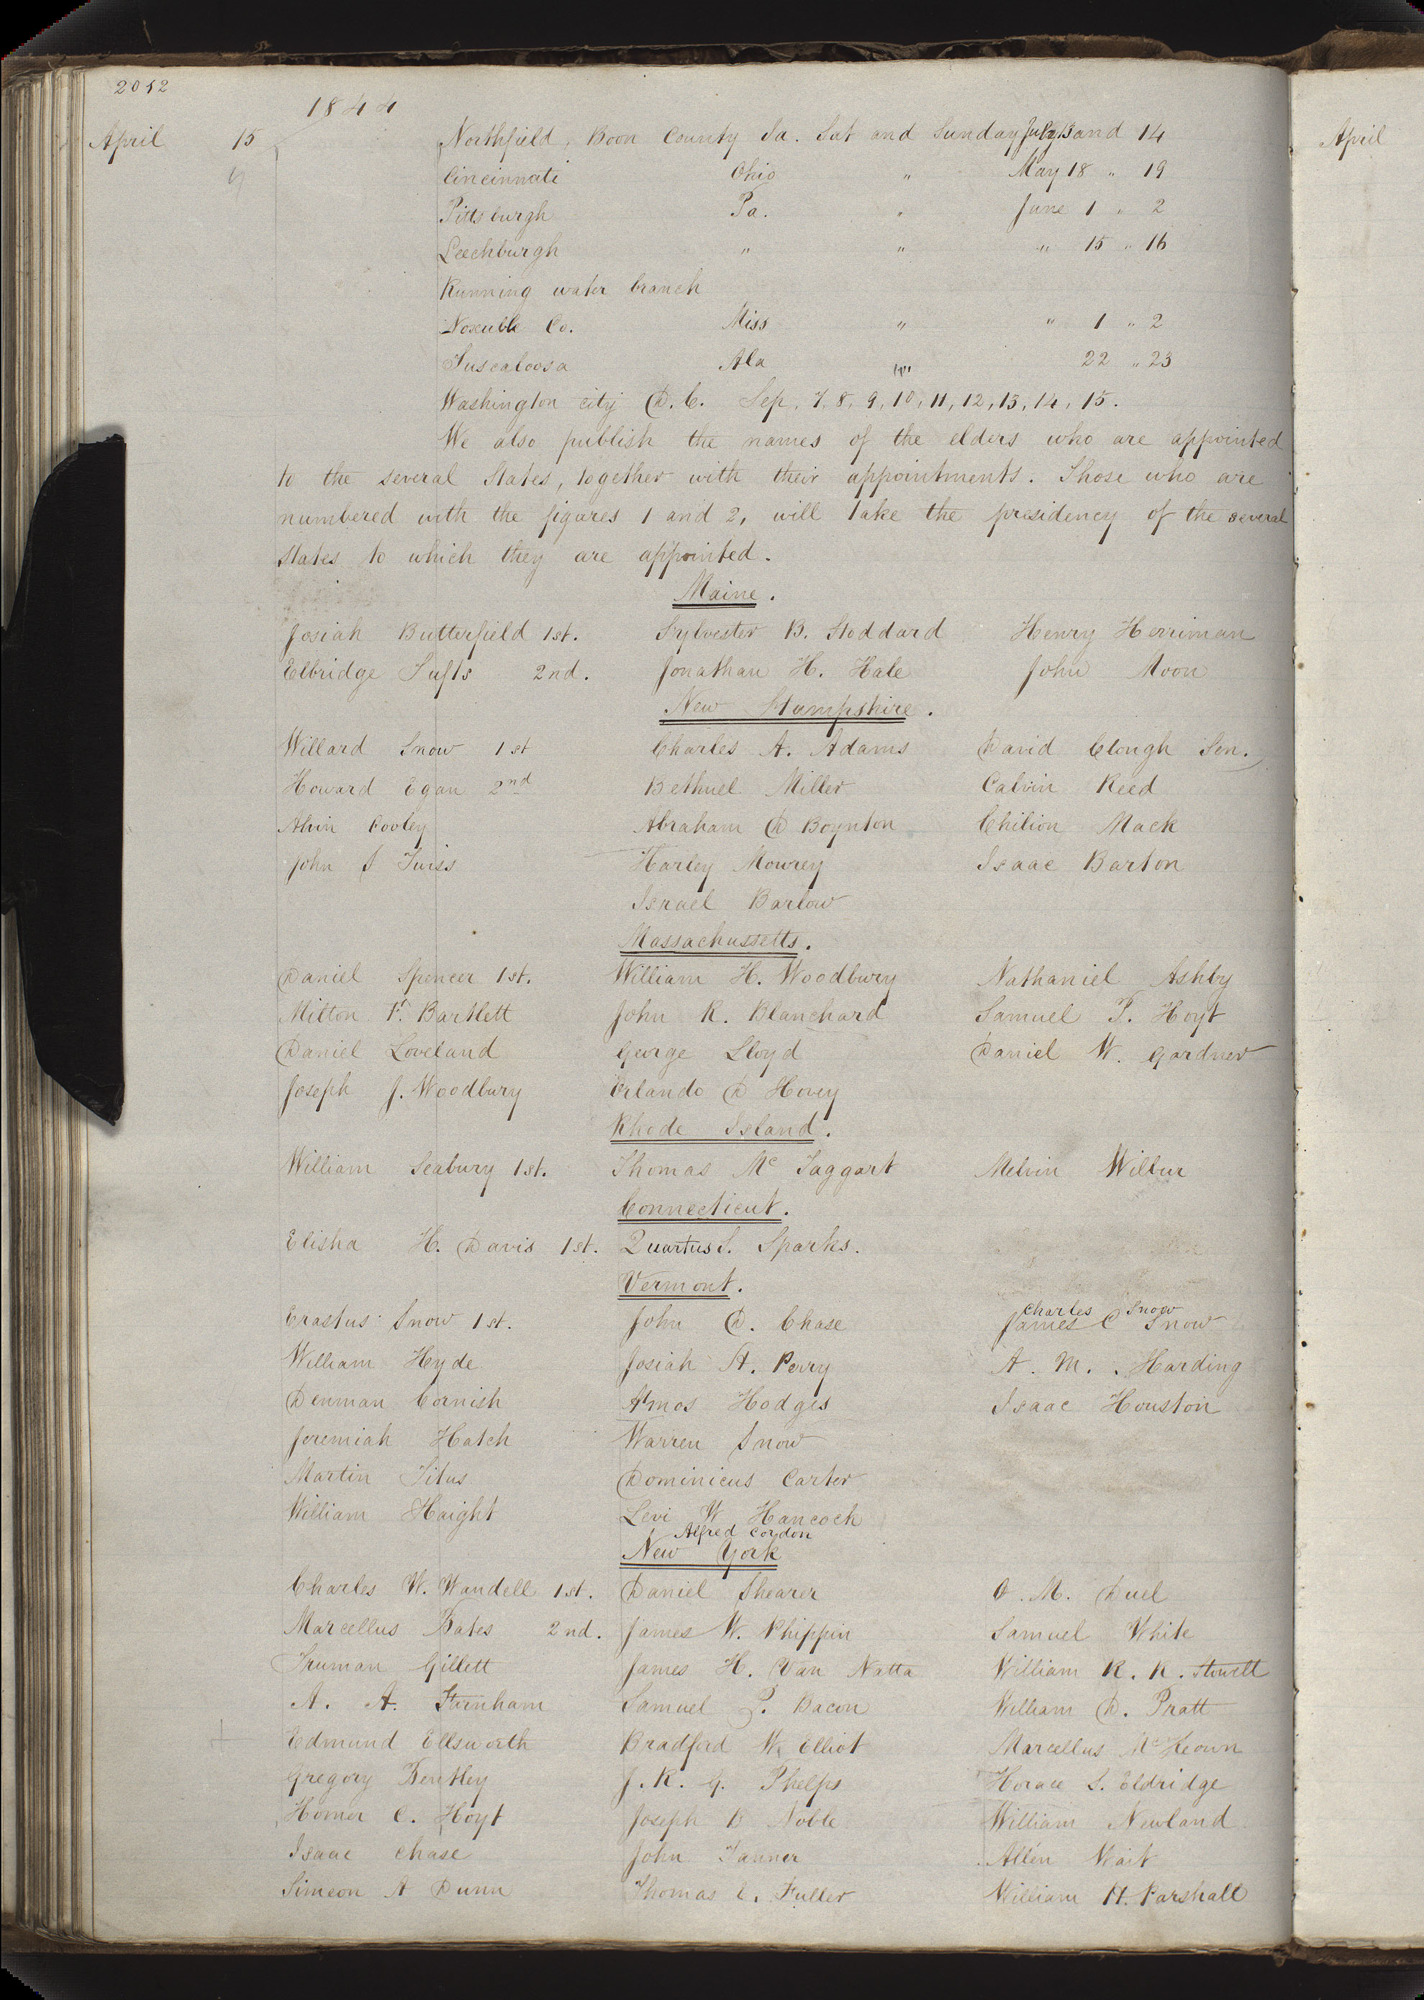 2052
1844
April 15 Northfield, Boon County Ia. Sat and Sunday July 13 and 14
Cincinnati Ohio " May 18 " 19
Pittsburgh Pa. " June 1 " 2
Leechburgh " " " 15 " 16
Running water branch
Noxuble Co. Miss " " 1 " 2
Tuscaloosa Ala " 22 " 23
Washington city D.C. Sep. 7, 8, 9, 10, 11, 12, 13, 14, 15.
We also publish the names of the elders who are appointed
to the several States, together with their appointments. Those who are
numbered with the figures 1 and 2, will take the presidency of the several
states to which they are appointed.
Maine.
Josiah Butterfield 1st. Sylvester B. Stoddard Henry Herriman
Elbridge Tufts 2nd. Jonathan H. Hale John Moon
New Hampshire.
Willard Snow 1st Charles A. Adams David Clough Sen.
Howard Egan 2nd Bethuel Miller Calvin Reed
Alvin Cooley Abraham D Boynton Chilion Mack
John S Twiss Harley Mowrey Isaac Barton
Israel Barlow
Massachussetts.
Daniel Spencer 1st. William H. Woodbury Nathaniel Ashby
Milton F. Bartlett John R. Blanchard Samuel P. Hoyt
Daniel Loveland George Lloyd Daniel W. Gardner
Joseph J. Woodbury Orlando D Hovey
Rhode Island.
William Seabury 1st. Thomas Mc Taggart Melvin Wilbur
Connecticut.
Elisha H. Davis 1st. Quartus S. Sparks.
Vermont.
Charles Snow
Erastus Snow 1st. John D. Chase James C Snow
William Hyde Josiah H. Perry A. M. Harding
Denman Cornish Amos Hodges Isaac Houston
Jeremiah Hatch Warren Snow
Martin Titus Dominicus Carter
William Haight Levi W Hancock
Alfred Cordon
New York
Charles W. Wandell 1st. Daniel Shearer O. M. Duel
Marcellus Bates 2nd. James W. Phippin Samuel White
Truman Gillett James H. Van Natta William R. R. Stowell
A. A. Farnham Samuel P. Bacon William D. Pratt
Edmund Ellsworth Bradford W. Elliot Marcellus McKeown
Gregory Bentley J. R. G. Phelps Horace S. Eldridge
Homer C. Hoyt Joseph B Noble William Newland
Isaac Chase John Tanner Allen Wait
Simeon A Dunn Thomas E. Fuller William H. Parshall
April